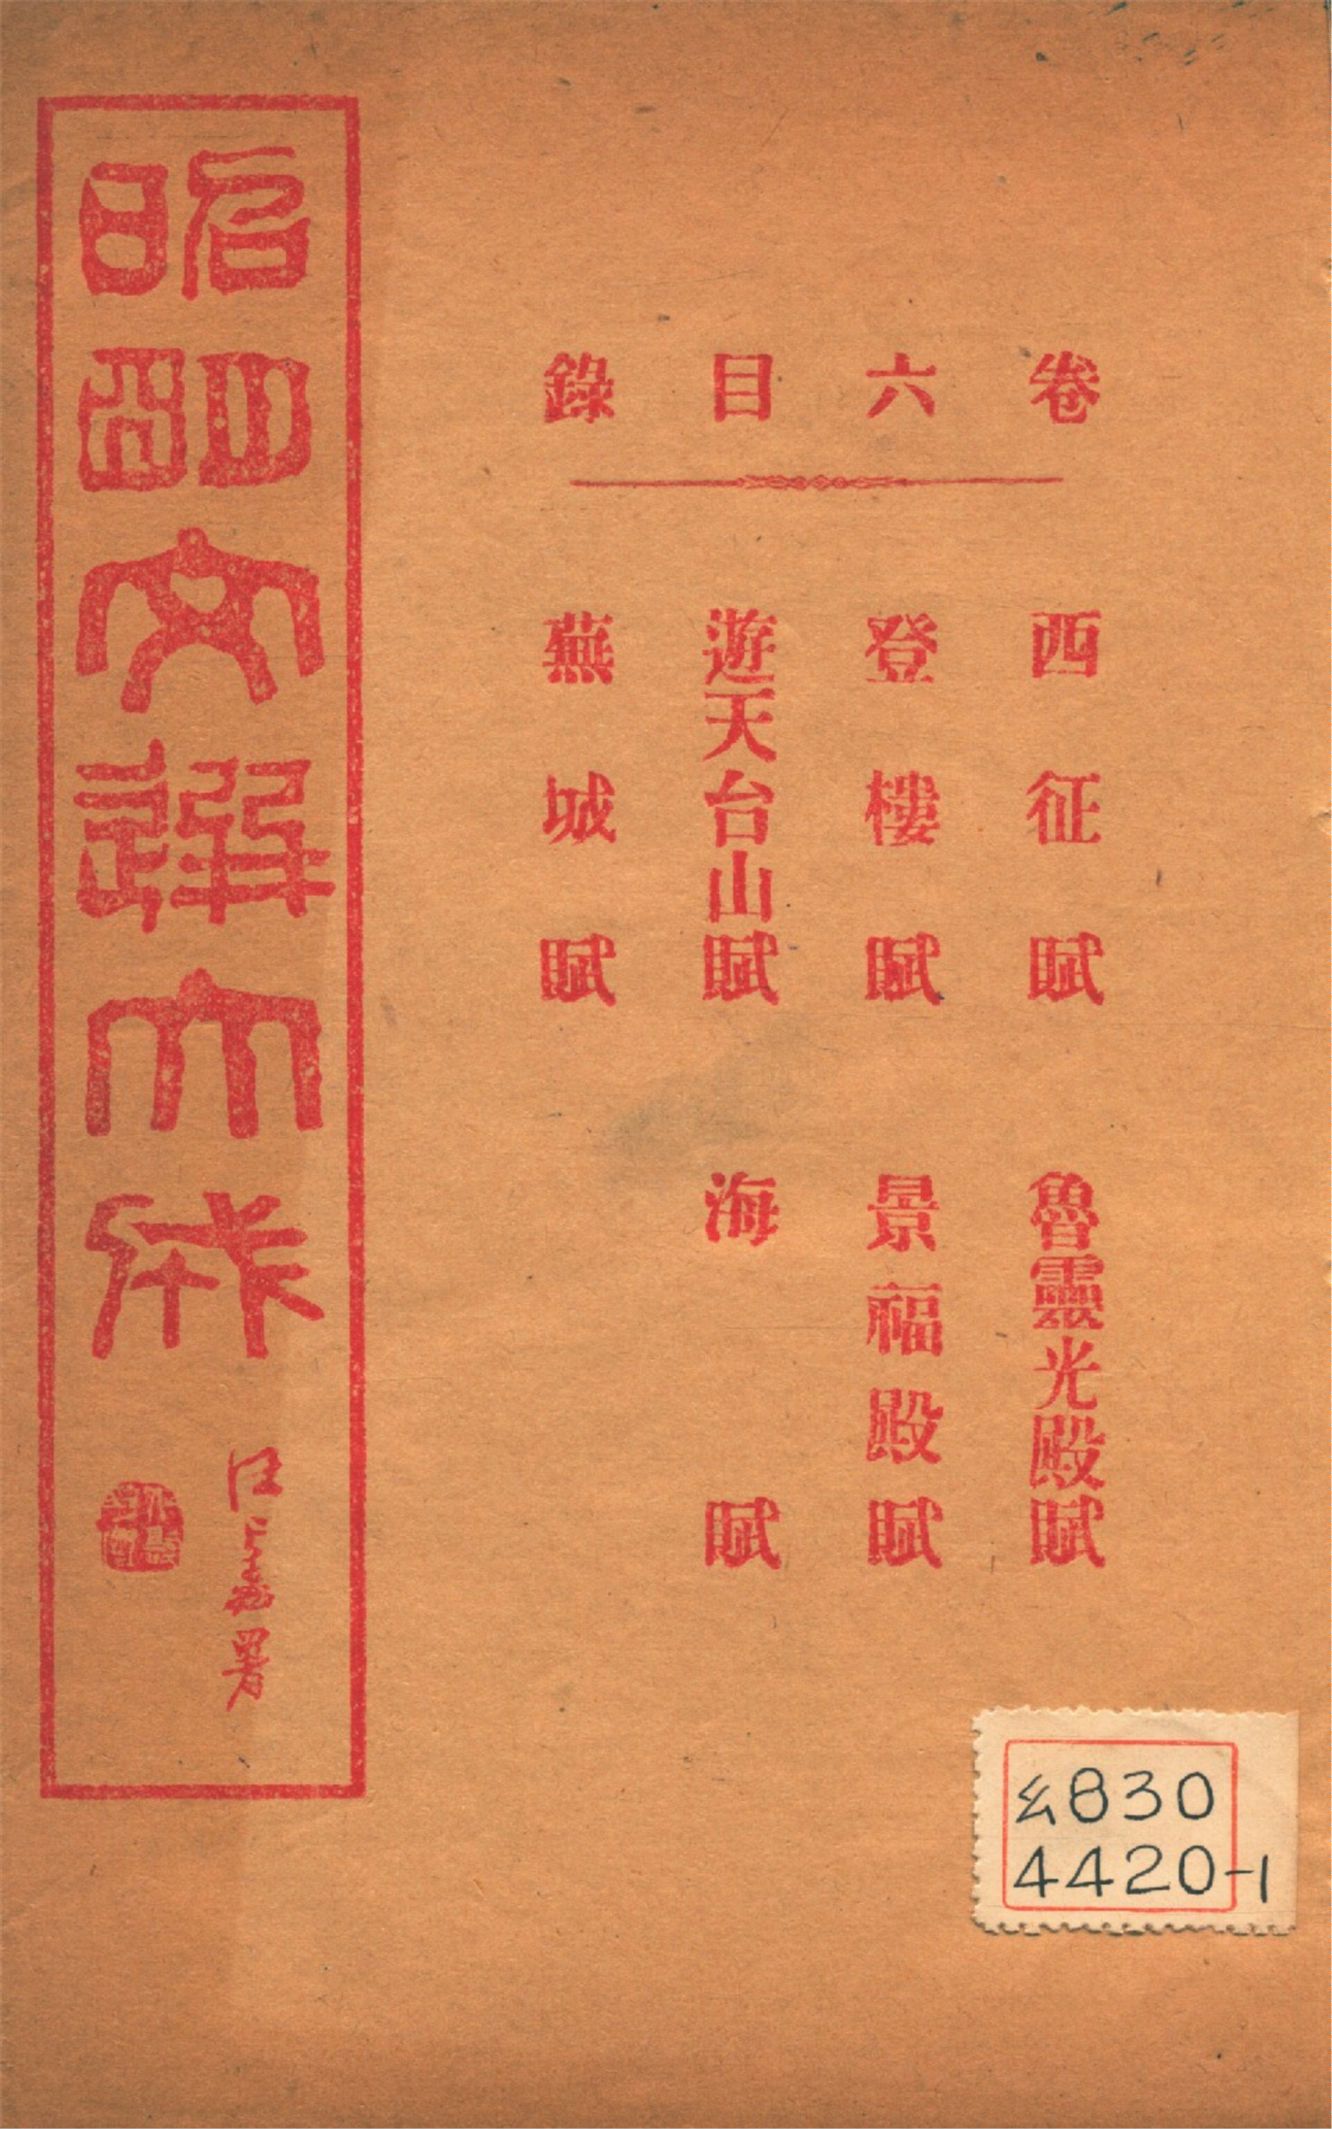 卷六目錄
西征賦
登樓賦
遊天台山賦
蕪城賦
魯靈光殿賦
景福殿賦
海賦
昭明文選大成
汪
署
830
4420-1